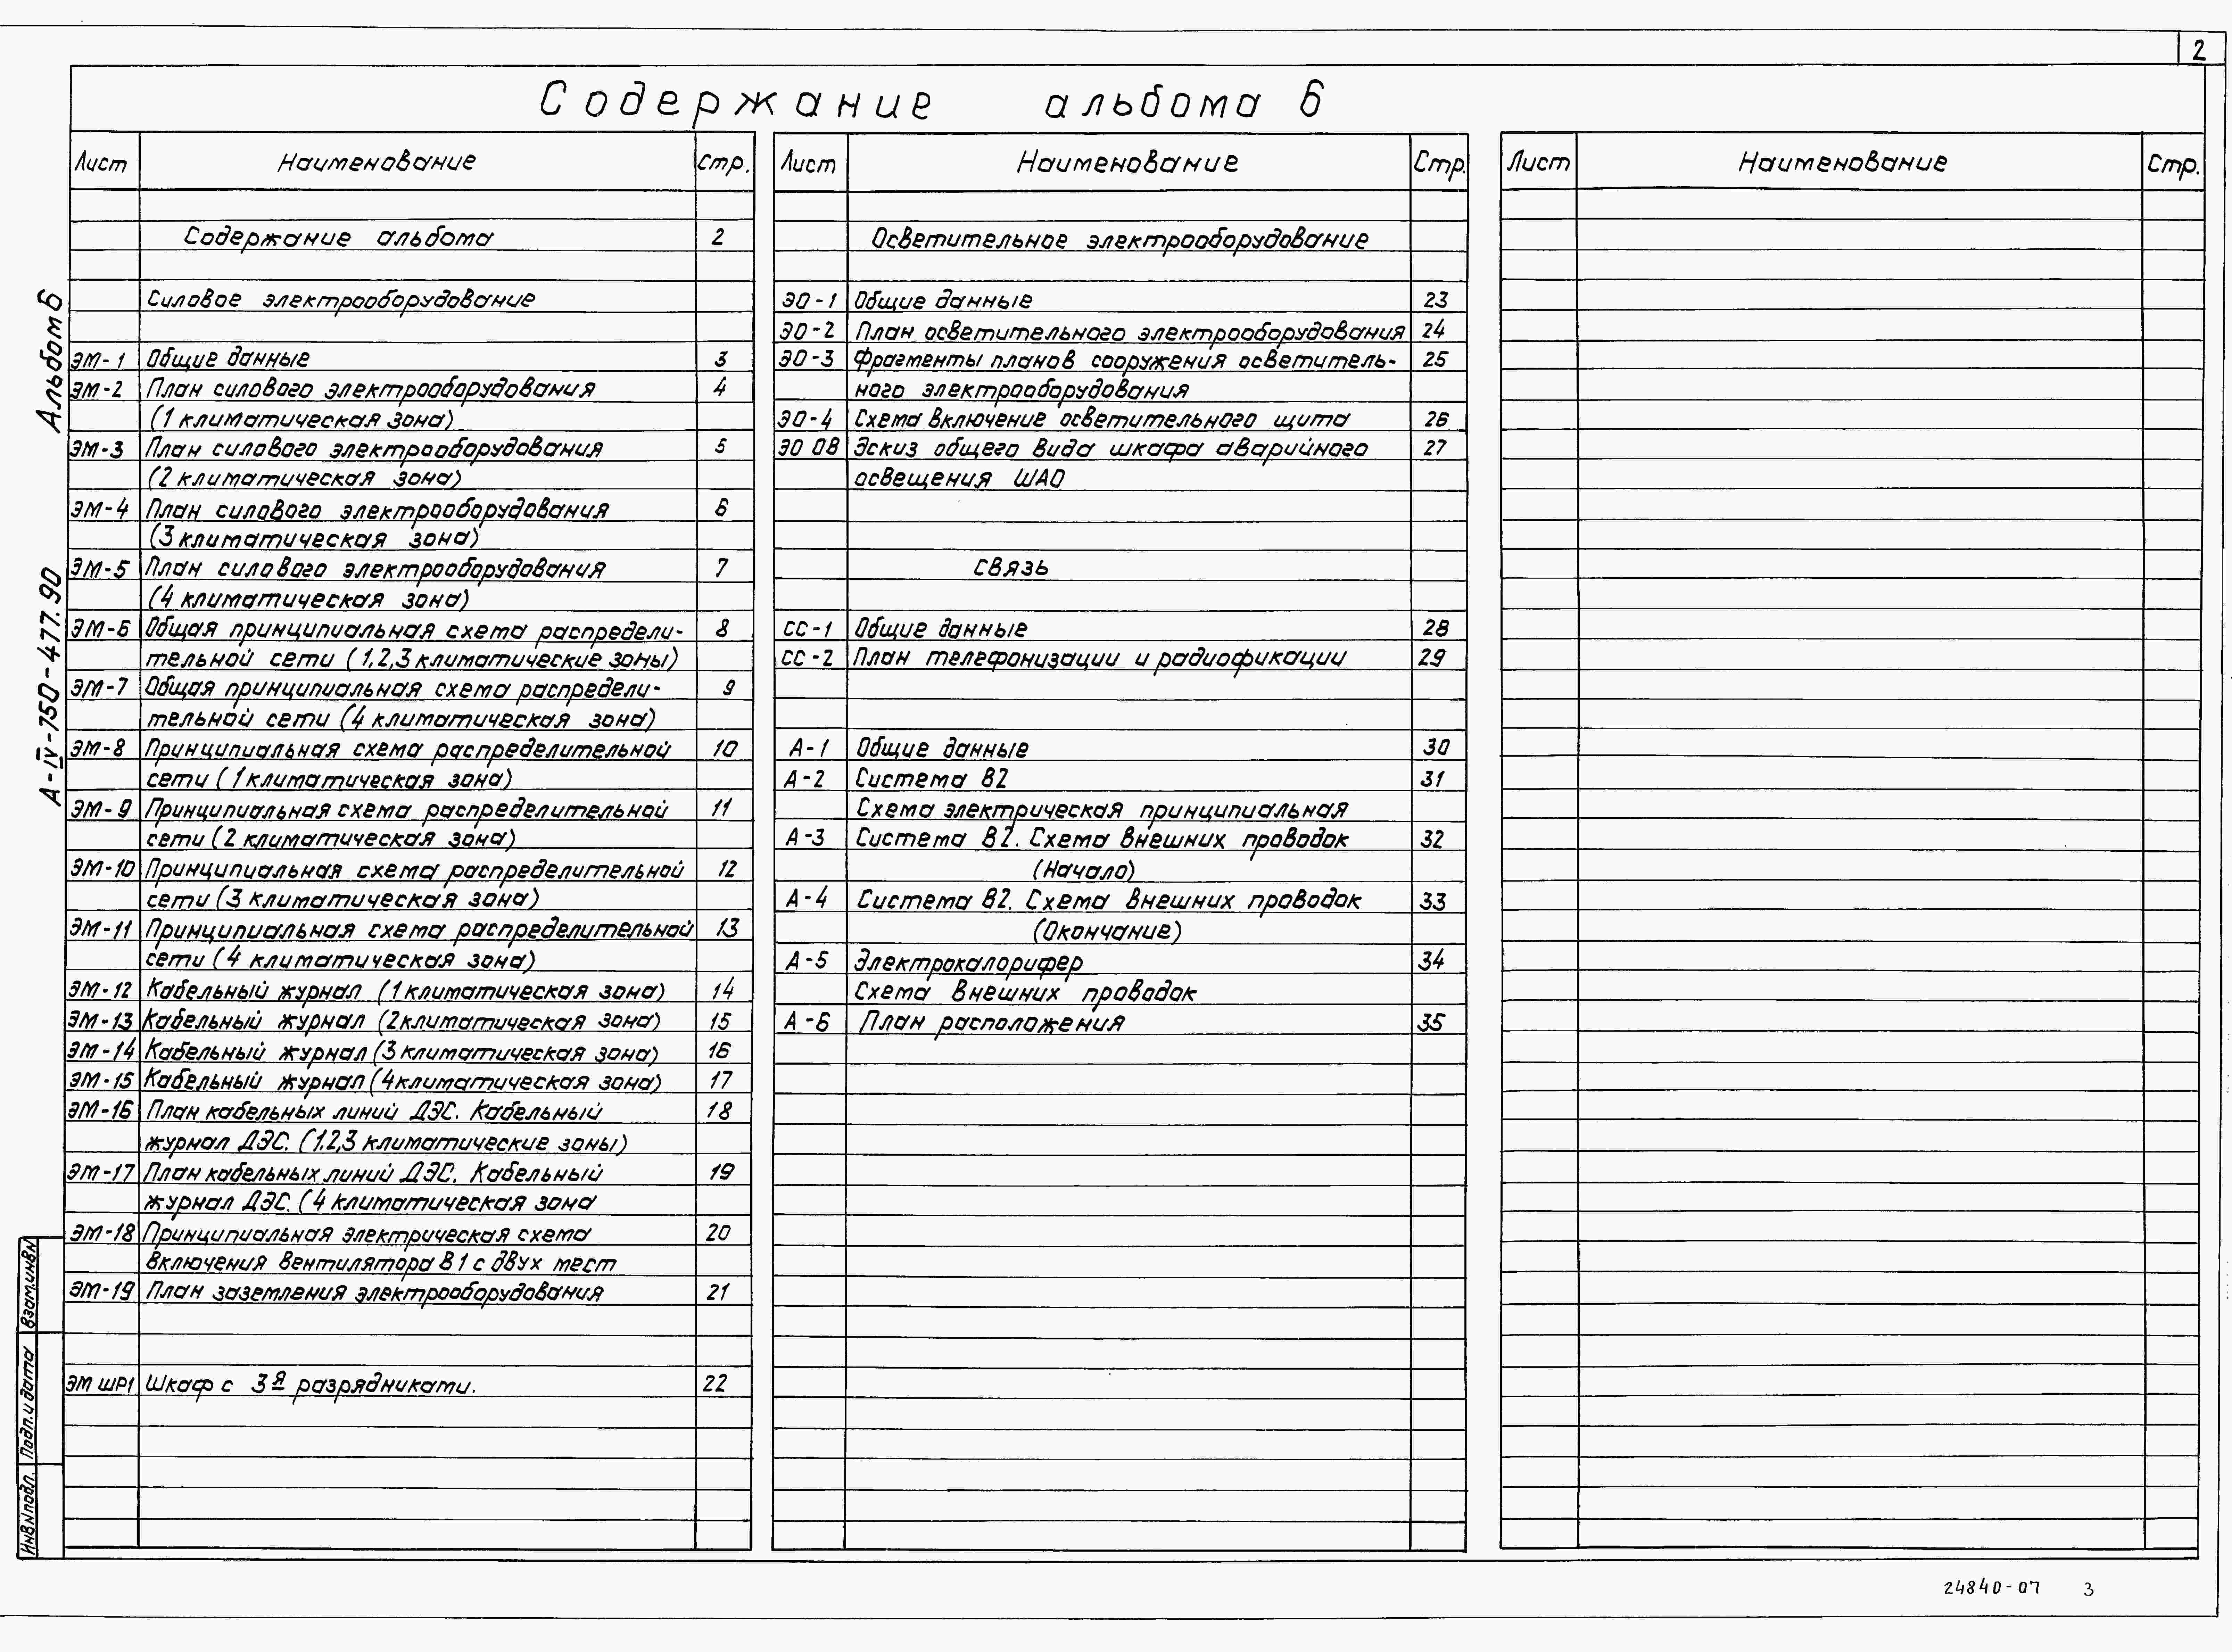 2
Содержание альбома 6
Лист Наименование Стр.
Содержание альбома 2
Силовое электрооборудование
ЭМ-1 Общие данные 3
ЭМ-2 План силового электрооборудования 4
(1 климатическая зона)
ЭМ-3 План силового электрооборудования 5
(2 климатическая зона)
ЭМ-4 План силового электрооборудования 6
(3 климатическая зона)
ЭМ-5 План силового электрооборудования 7
(4 климатическая зона)
ЭМ-6 Общая принципиальная схема распредели- 8
тельной сети (1,2,3 климатические зоны)
ЭМ-7 Общая принципиальная схема распредели- 9
тельной сети (4 климатическая зона)
ЭМ-8 Принципиальная схема распределительной 10
сети (1 климатическая зона)
ЭМ-9 Принципиальная схема распределительной 11
сети (2 климатическая зона)
ЭМ-10 Принципиальная схема распределительной 12
сети (3 климатическая зона)
ЭМ-11 Принципиальная схема распределительной 13
сети (4 климатическая зона)
ЭМ-12 Кабельный журнал (1 климатическая зона) 14
ЭМ-13 Кабельный журнал (2 климатическая зона) 15
ЭМ-14 Кабельный журнал (3 климатическая зона) 16
ЭМ-15 Кабельный журнал (4 климатическая зона) 17
ЭМ-16 План кабельных линий ДЭС. Кабельный 18
журнал ДЭС. (1,2,3 климатические зоны)
ЭМ-17 План кабельных линий ДЭС. Кабельный 19
журнал ДЭС. (4 климатическая зона
ЭМ-18 Принципиальная электрическая схема 20
включения вентилятора В1 с двух мест
ЭМ-19 План заземления электрооборудования 21
ЭМ ШР1 Шкаф с 3я разрядниками. 22
Лист Наименование Стр.
Осветительное электрооборудование
ЭО-1 Общие данные 23
ЭО-2 План осветительного электрооборудования 24
ЭО-3 Фрагменты планов сооружения осветитель- 25
ного электрооборудования
ЭО-4 Схема включение осветительного щита 26
ЭО ОВ Эскиз общего вида шкафа аварийного 27
освещения ШАО
связь
СС-1 Общие данные 28
СС-2 План телефонизации и радиофикации 29
А-1 Общие данные 30
А-2 Система В2 31
Схема электрическая принципиальная
А-3 Система В2. Схема внешних проводок 32
(Начало)
А-4 Система В2. Схема внешних проводок 33
(Окончание)
А-5 Электрокалорифер 34
Схема внешних проводок
А-6 План расположения 35
Лист Наименование Стр.
Альбом 6
А-IV-750-477.90
Взам.инв.N
Подп. и дата
Инв.N подл.
24840-07 3